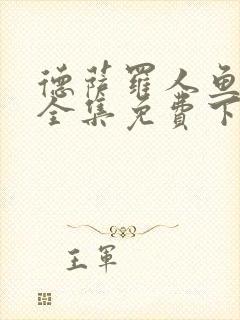 德萨罗人鱼
全集免费下
王军